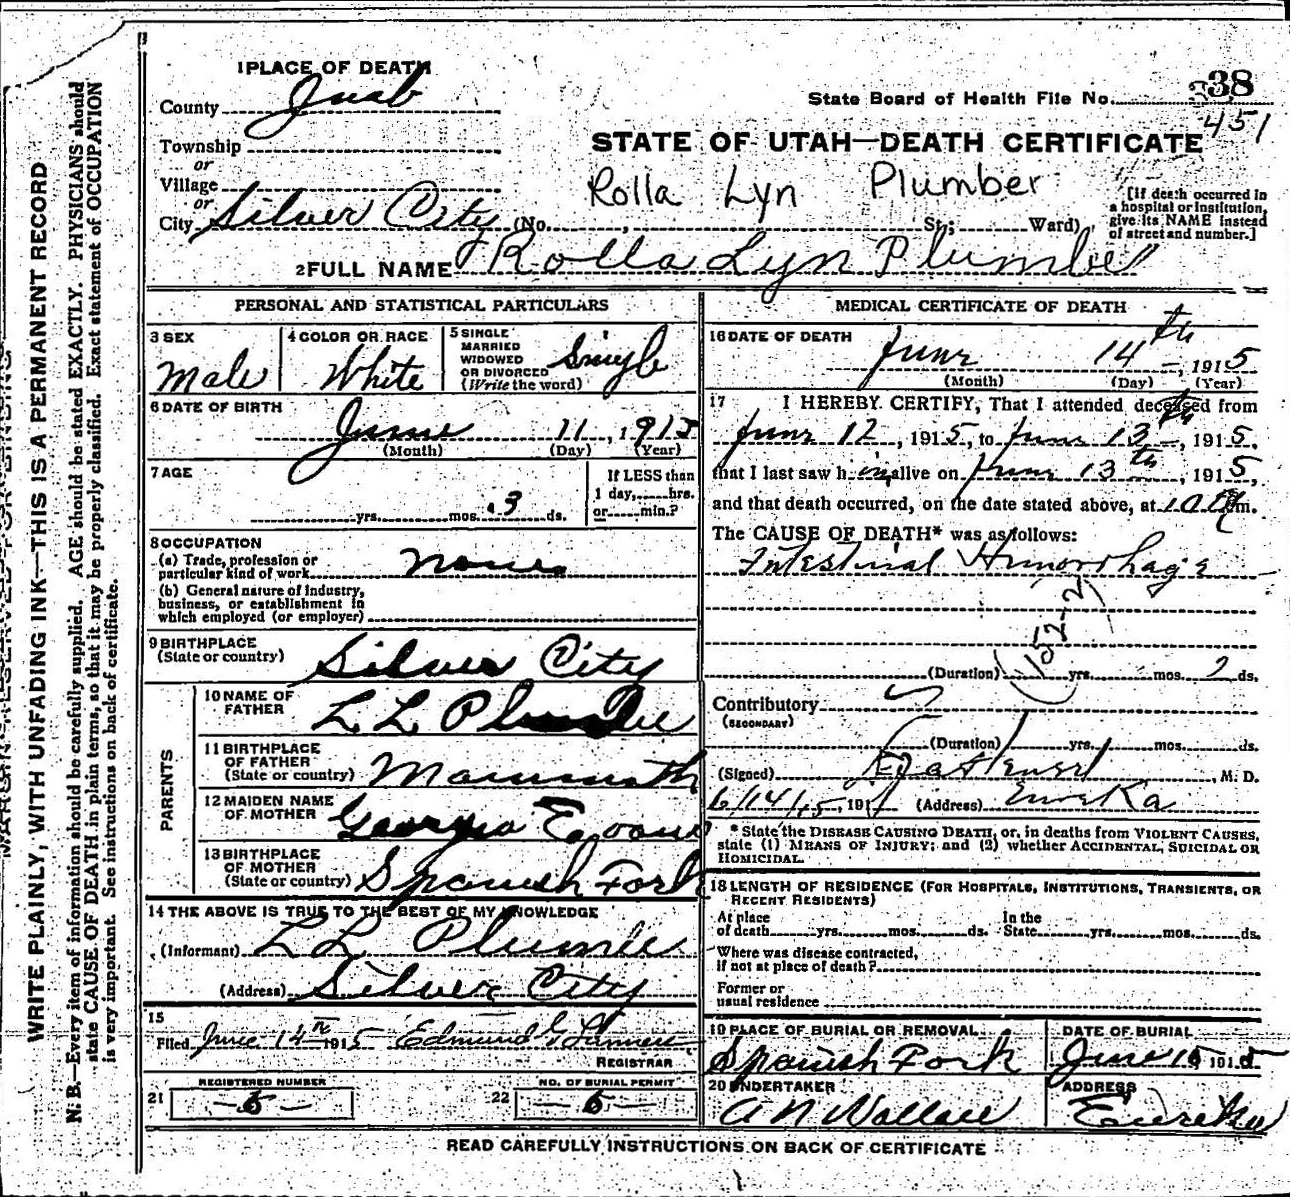 1 PLACE OF DEATH
County Juab
State Board of Health File No. 38
451
Township
or
Village
or
City Silver City (No. , St.; Ward)
STATE OF UTAH—DEATH CERTIFICATE
Rolla Lyn Plumber
[If death occurred in a hospital or institution, give its NAME instead of street and number.]
2 FULL NAME Rolla Lyn Plumbe
PERSONAL AND STATISTICAL PARTICULARS
3 SEX
Male
4 COLOR OR RACE
White
5 SINGLE MARRIED WIDOWED OR DIVORCED (Write the word)
Single
6 DATE OF BIRTH
June 11, 1915
(Month) (Day) (Year)
7 AGE
yrs. mos. 3 ds.
If LESS than 1 day, hrs. or min.?
8 OCCUPATION
(a) Trade, profession or particular kind of work None
(b) General nature of industry, business, or establishment in which employed (or employer)
9 BIRTHPLACE
(State or country) Silver City
PARENTS
10 NAME OF FATHER L L Plumbe
11 BIRTHPLACE OF FATHER (State or country) Mammoth
12 MAIDEN NAME OF MOTHER Georgia Evans
13 BIRTHPLACE OF MOTHER (State or country) Spanish Fork
14 THE ABOVE IS TRUE TO THE BEST OF MY KNOWLEDGE
(Informant) L L Plumbe
(Address) Silver City
15
Filed June 14th 1915 Edmund G
REGISTRAR
21 REGISTERED NUMBER
—5—
22 NO. OF BURIAL PERMIT
—5—
MEDICAL CERTIFICATE OF DEATH
16 DATE OF DEATH
June 14th, 1915
(Month) (Day) (Year)
17 I HEREBY CERTIFY, That I attended deceased from
June 12, 1915, to June 13th, 1915,
that I last saw him alive on June 13th, 1915,
and that death occurred, on the date stated above, at m.
The CAUSE OF DEATH* was as follows:
Intestinal Hemorrhage
(152-2)
(Duration) yrs. mos. 2 ds.
Contributory
(SECONDARY)
(Duration) yrs. mos. ds.
(Signed) , M. D.
6/14/15, 191 (Address) Eureka
* State the DISEASE CAUSING DEATH, or, in deaths from VIOLENT CAUSES, state (1) MEANS OF INJURY; and (2) whether ACCIDENTAL, SUICIDAL OR HOMICIDAL.
18 LENGTH OF RESIDENCE (FOR HOSPITALS, INSTITUTIONS, TRANSIENTS, OR RECENT RESIDENTS)
At place of death yrs. mos. ds. In the State yrs. mos. ds.
Where was disease contracted, if not at place of death?
Former or usual residence
19 PLACE OF BURIAL OR REMOVAL
Spanish Fork
DATE OF BURIAL
June 1915
20 UNDERTAKER
A N Wallace
ADDRESS
Eureka
READ CAREFULLY INSTRUCTIONS ON BACK OF CERTIFICATE
WRITE PLAINLY, WITH UNFADING INK—THIS IS A PERMANENT RECORD
N. B.—Every item of information should be carefully supplied. AGE should be stated EXACTLY. PHYSICIANS should
state CAUSE OF DEATH in plain terms, so that it may be properly classified. Exact statement of OCCUPATION
is very important. See instructions on back of certificate.